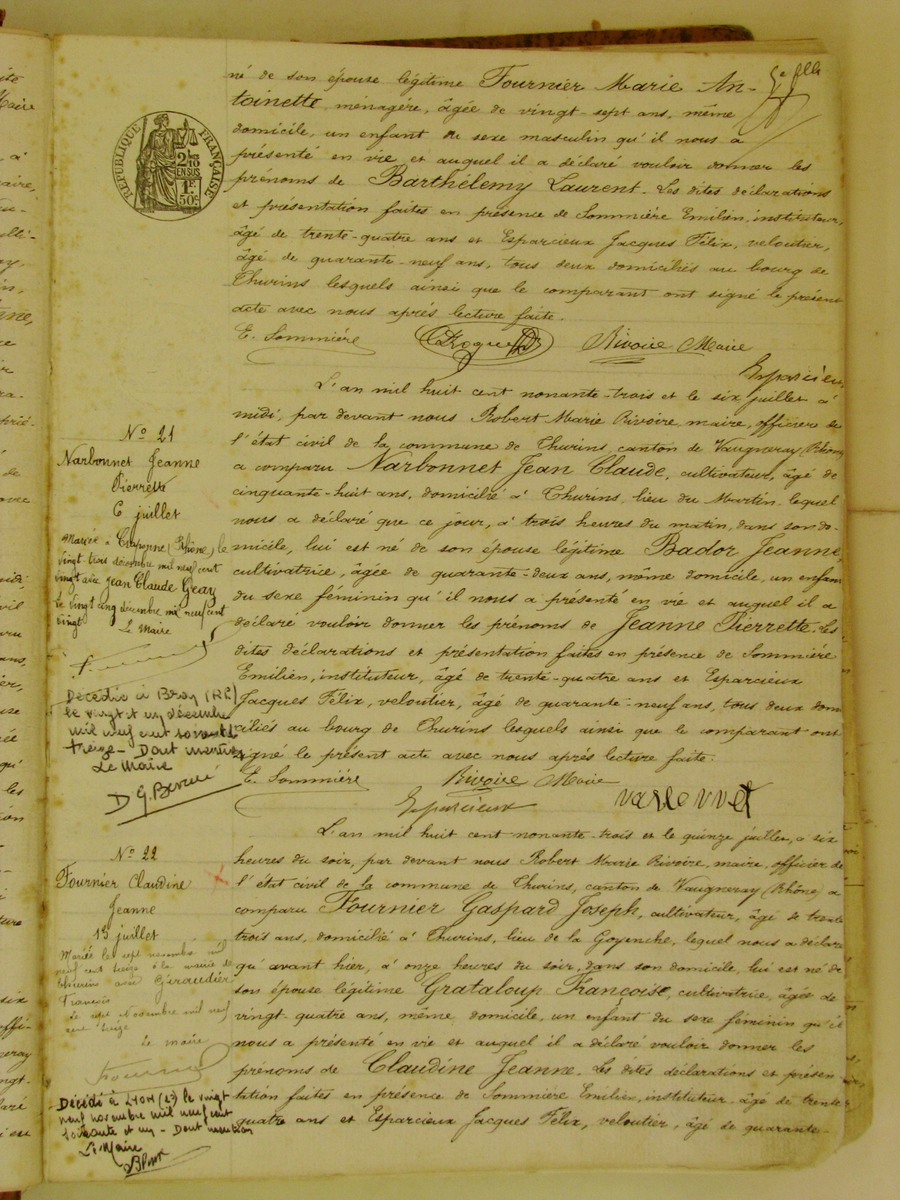 né de son épouse légitime Fournier Marie An-
toinette, ménagère, âgée de vingt-sept ans, même
domicile, un enfant du sexe masculin qu'il nous a
présenté en vie, et auquel il a déclaré vouloir donner les
prénoms de Barthélemy Laurent. Les dites déclarations
et présentation faites en présence de Sommière Emilien, instituteur,
âgé de trente-quatre ans et Esparcieux Jacques Félix, veloutier,
âgé de quarante-neuf ans, tous deux domiciliés au bourg de
Thurins lesquels ainsi que le comparant ont signé le présent
acte avec nous après lecture faite.
E. Sommière Rivoire Maire
Esparcieux
REPUBLIQUE FRANÇAISE
2/10
EN SUS
1F
50c
L'an mil huit cent nonante-trois et le six juillet à
midi, par devant nous Robert Marie Rivoire maire, officier de
l'état civil de la commune de Thurins canton de Vaugneray (Rhône)
a comparu Narbonnet Jean Claude, cultivateur, âgé de
cinquante-huit ans, domicilié à Thurins, lieu du Martin, lequel
nous a déclaré que ce jour, à trois heures du matin, dans son do-
micile, lui est né de son épouse légitime Bador Jeanne
cultivatrice, âgée de quarante-deux ans, même domicile, un enfant
du sexe féminin qu'il nous a présenté en vie et auquel il a
déclaré vouloir donner les prénoms de Jeanne Pierrette. Les
dites déclarations et présentation faites en présence de Sommière
Emilien, instituteur, âgé de trente-quatre ans et Esparcieux
Jacques Félix, veloutier, âgé de quarante-neuf ans, tous deux domi
ciliés au bourg de Thurins lesquels ainsi que le comparant ont
signé le présent acte avec nous après lecture faite.
E. Sommière Rivoire Maire
Esparcieux
No 21
Narbonnet Jeanne
Pierrette
6 juillet
Mariée à Craponne (Rhône) le
vingt trois décembre mil neuf cent
vingt avec Jean Claude Geay
Le vingt cinq décembre mil neuf cent
vingt
Le Maire
Décédée à
le vingt et un décembre
mil neuf cent soixante
treize - Dont mention
Le Maire
L'an mil huit cent nonante-trois et le quinze juillet, à six
heures du soir, par devant nous Robert Marie Rivoire, maire, officier de
l'état civil de la commune de Thurins, canton de Vaugneray (Rhône) a
comparu Fournier Gaspard Joseph, cultivateur, âgé de trente
trois ans, domicilié à Thurins, lieu de la Goyenche, lequel nous a déclaré
qu'avant hier, à onze heures du soir, dans son domicile, lui est né de
son épouse légitime Grataloup Françoise, cultivatrice, âgée de
vingt-quatre ans, même domicile, un enfant du sexe féminin qu'il
nous a présenté en vie et auquel il a déclaré vouloir donner les
prénoms de Claudine Jeanne. Les dites déclarations et présen-
tation faites en présence de Sommière Emilien, instituteur âgé de trente
quatre ans et Esparcieux Jacques Félix, veloutier, âgé de quarante-
No 22
Fournier Claudine
Jeanne
13 juillet
Mariée le sept novembre mil
neuf cent seize à la mairie de
Thurins avec Giraudier
François
novembre mil neuf
cent seize
le maire
Fournier
Décédé à LYON (2e) le vingt
neuf novembre mil neuf cent
soixante et un - Dont mention
Le Maire